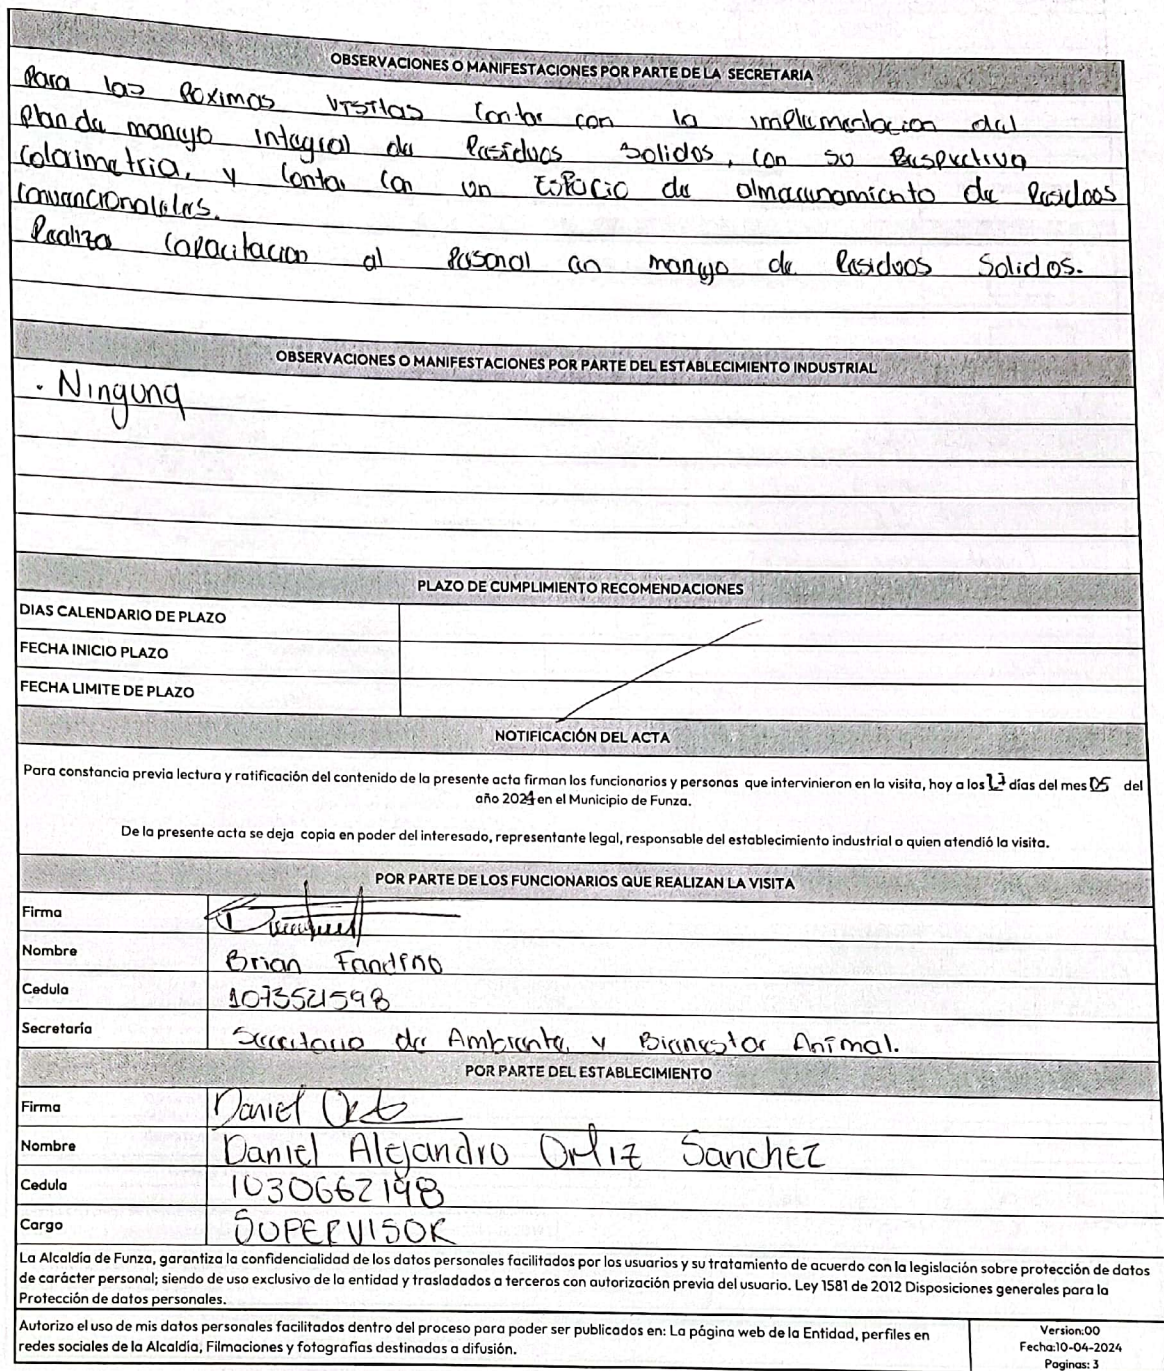 OBSERVACIONES O MANIFESTACIONES POR PARTE DE LA SECRETARIA
Para las Poximas visitas Contar con la implementacion del
Plan de manejo integral de Residuos Solidos, con su Respectiva
Colorimetria, y Contar con un Espacio de almacenamiento de Residuos
Convencionales.
Realizar Capacitacion al Personal en manejo de Residuos Solidos.
OBSERVACIONES O MANIFESTACIONES POR PARTE DEL ESTABLECIMIENTO INDUSTRIAL
. Ninguna
PLAZO DE CUMPLIMIENTO RECOMENDACIONES
DIAS CALENDARIO DE PLAZO
FECHA INICIO PLAZO
FECHA LIMITE DE PLAZO
NOTIFICACIÓN DEL ACTA
Para constancia previa lectura y ratificación del contenido de la presente acta firman los funcionarios y personas que intervinieron en la visita, hoy a los días del mes 05 del
año 2024 en el Municipio de Funza.
De la presente acta se deja copia en poder del interesado, representante legal, responsable del establecimiento industrial o quien atendió la visita.
POR PARTE DE LOS FUNCIONARIOS QUE REALIZAN LA VISITA
Firma
Nombre Brian Fandino
Cedula 1073521598
Secretaría Secretaria de Ambiente y Bienestar Animal.
POR PARTE DEL ESTABLECIMIENTO
Firma Daniel
Nombre Daniel Alejandro Ortiz Sanchez
Cedula 1030662198
Cargo SUPERVISOR
La Alcaldía de Funza, garantiza la confidencialidad de los datos personales facilitados por los usuarios y su tratamiento de acuerdo con la legislación sobre protección de datos
de carácter personal; siendo de uso exclusivo de la entidad y trasladados a terceros con autorización previa del usuario. Ley 1581 de 2012 Disposiciones generales para la
Protección de datos personales.
Autorizo el uso de mis datos personales facilitados dentro del proceso para poder ser publicados en: La página web de la Entidad, perfiles en
redes sociales de la Alcaldía, Filmaciones y fotografías destinadas a difusión.
Version:00
Fecha:10-04-2024
Paginas: 3